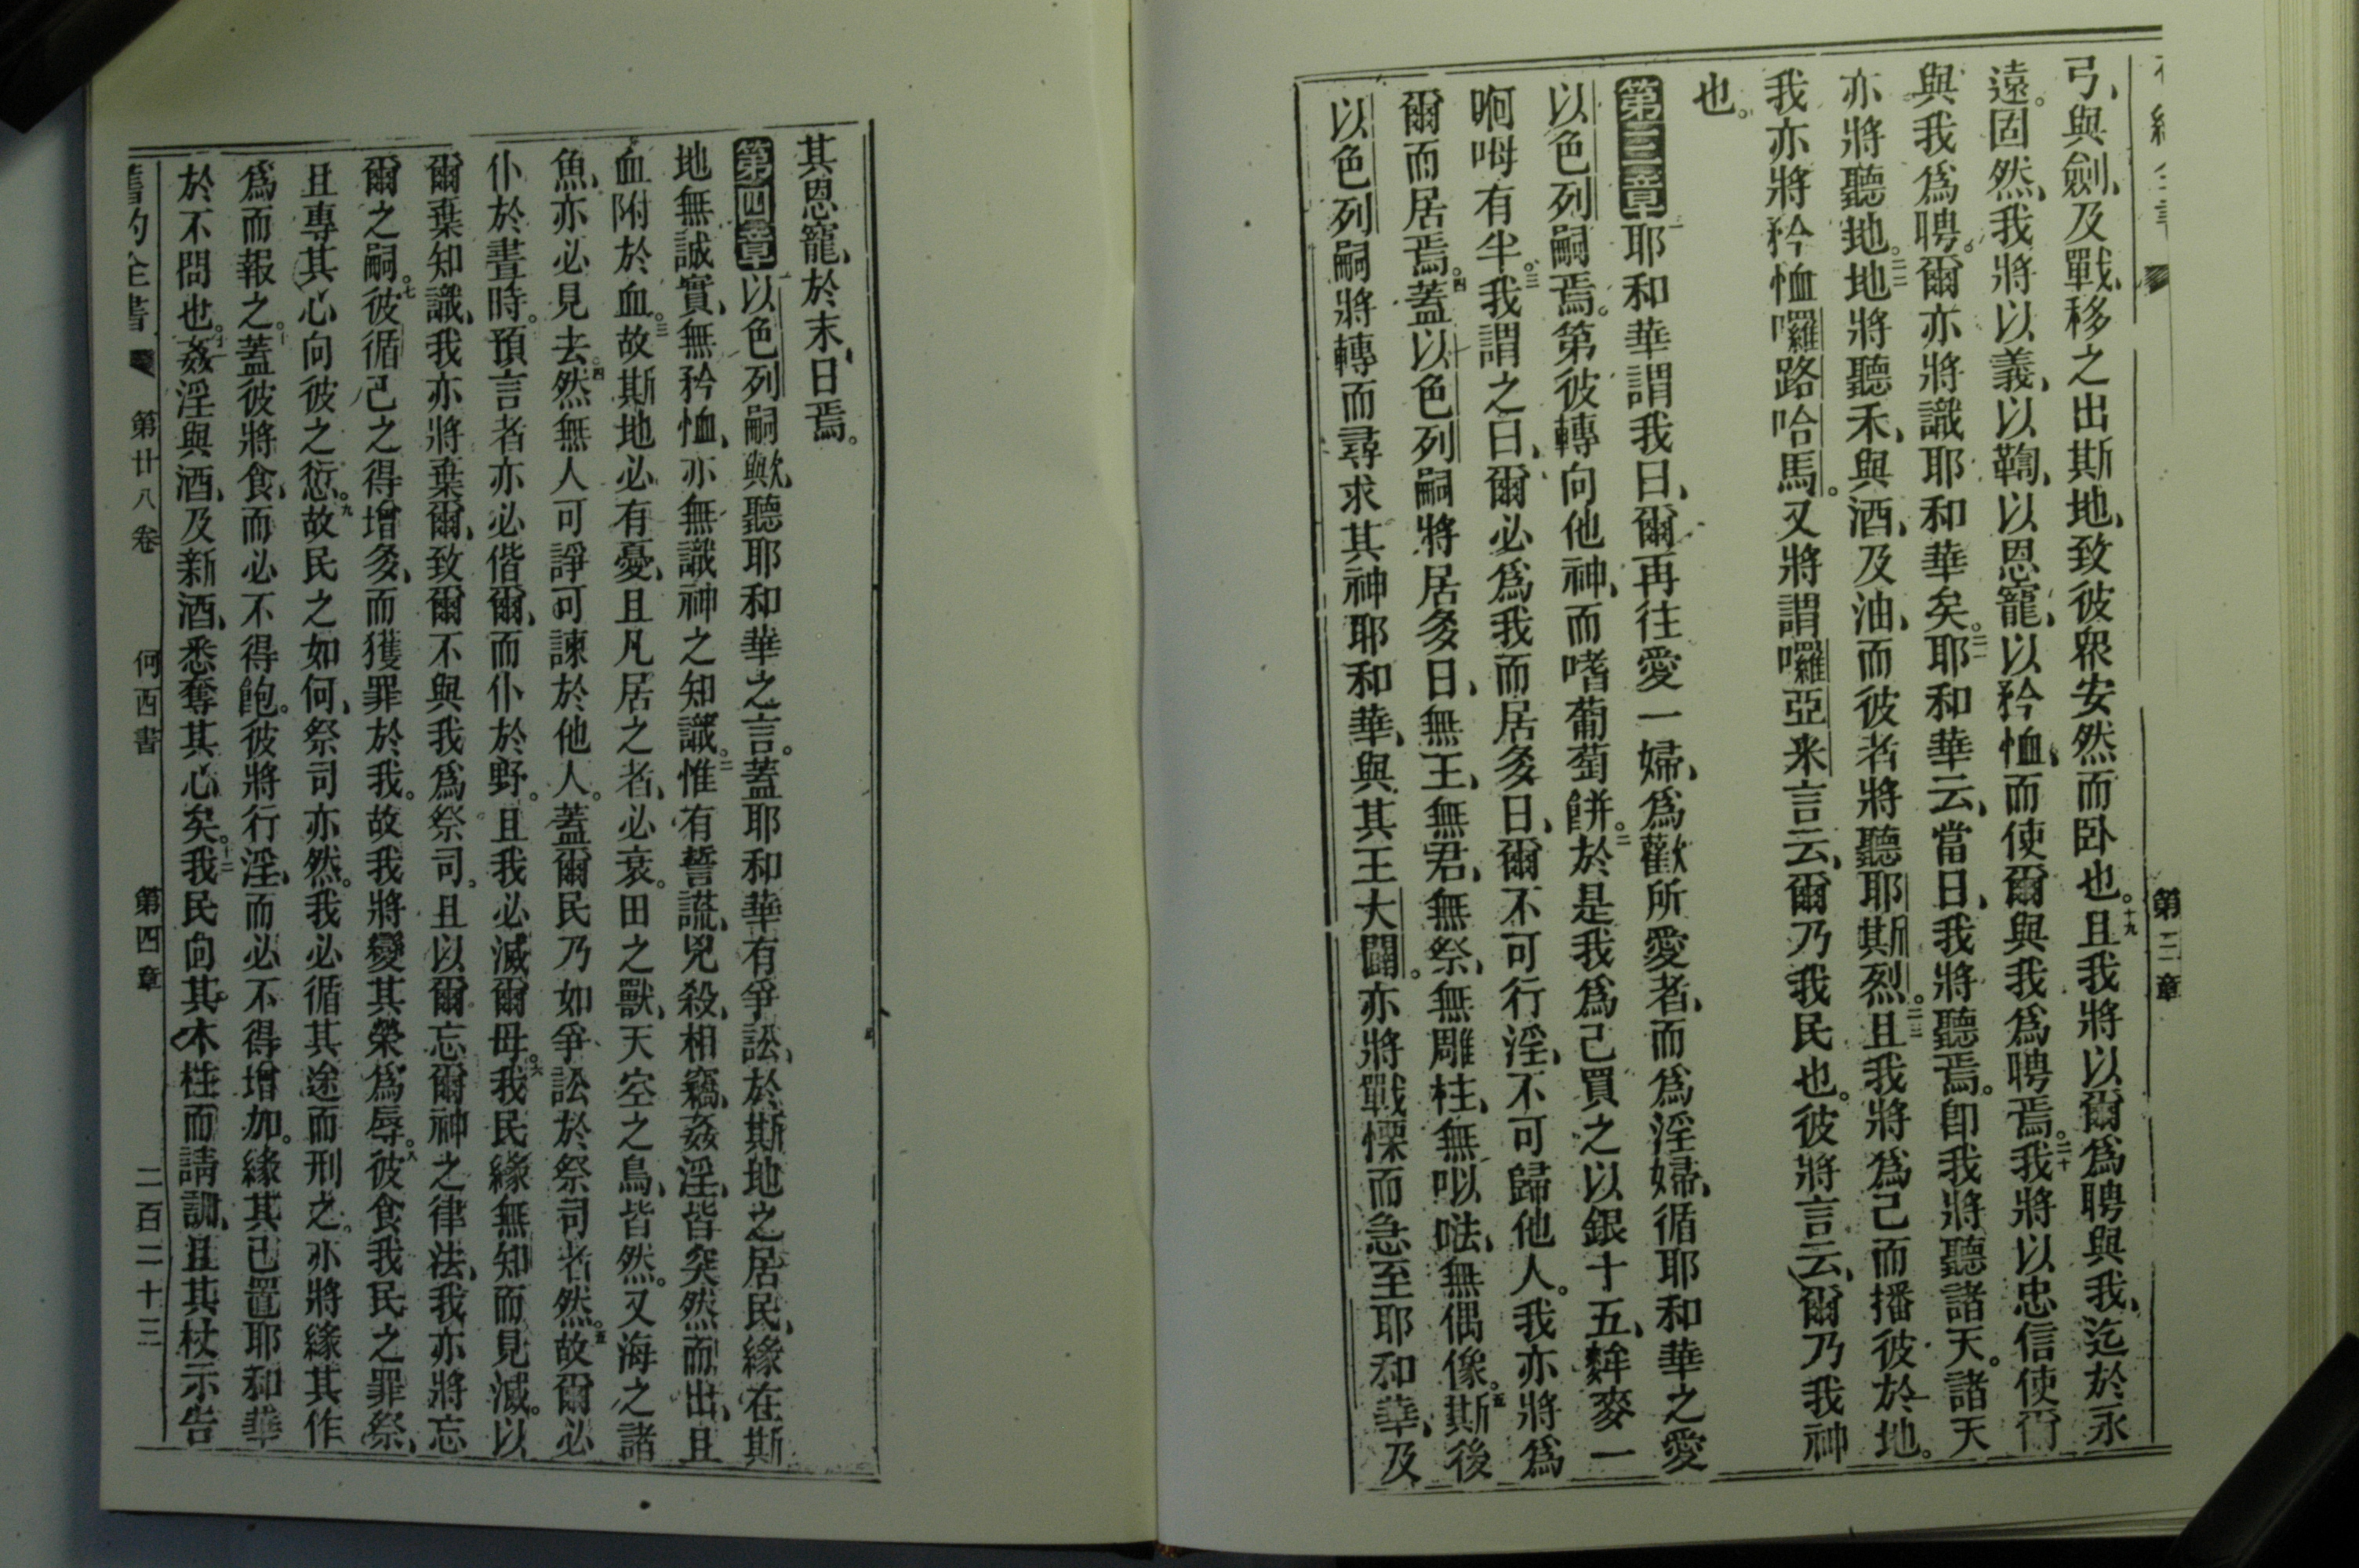 第二章
弓、與劍、及戰、移之出斯地、致彼眾安然而卧也。十九且我將以爾爲聘與我、迄於永
遠。固然、我將以義、以鞫、以恩寵、以矜恤、而使爾與我爲聘焉。二十我將以忠信使爾
與我爲聘。爾亦將識耶和華矣。二一耶和華云、當日、我將聽焉。卽我將聽諸天。諸天
亦將聽地。二二地將聽禾、與酒、及油、而彼者將聽耶斯烈。二三且我將爲己而播彼於地。
我亦將矜恤囉路哈馬。又將謂囉亞米言云、爾乃我民也。彼將言云、爾乃我神
也。
第三章一耶和華謂我曰、爾再往愛一婦、爲歡所愛者、而爲淫婦、循耶和華之愛
以色列嗣焉。第彼轉向他神、而嗜葡萄餅。二於是我爲己買之以銀十五、䴰麥一
啊呣有半。三我謂之曰、爾必爲我而居多日、爾不可行淫、不可歸他人。我亦將爲
爾而居焉。四蓋以色列嗣將居多日、無王、無君、無祭、無雕柱、無㕽㕸、無偶像。五斯後
以色列嗣將轉而尋求其神耶和華、與其王大闢。亦將戰慄而急至耶和華、及
其恩寵、於末日焉。
第四章一以色列嗣歟、聽耶和華之言。蓋耶和華有爭訟、於斯地之居民、緣在斯
地無誠實、無矜恤、亦無識神之知識。二惟有誓謊、兇殺、相竊、姦淫、皆突然而出、且
血附於血。三故斯地必有憂、且凡居之者、必衰。田之獸、天空之鳥、皆然。又海之諸
魚、亦必見去。四然無人可諍可諫於他人。蓋爾民乃如爭訟於祭司者然。五故爾必
仆於晝時。預言者亦必偕爾、而仆於野。且我必滅爾母。六我民緣無知而見滅。以
爾棄知識、我亦將棄爾、致爾不與我爲祭司。且以爾忘爾神之律法、我亦將忘
爾之嗣。七彼循己之得增多、而獲罪於我。故我將變其榮爲辱。八彼食我民之罪祭、
且專其心向彼之愆。九故民之如何、祭司亦然。我必循其途而刑之。亦將緣其作
爲而報之。十蓋彼將食、而必不得飽。彼將行淫、而必不得增加。緣其已置耶和華
於不問也。十一姦淫與酒、及新酒、悉奪其心矣。十二我民向其木柱而請訓、且其杖示告
舊約全書 第廿八卷 何西書 第四章 二百二十三